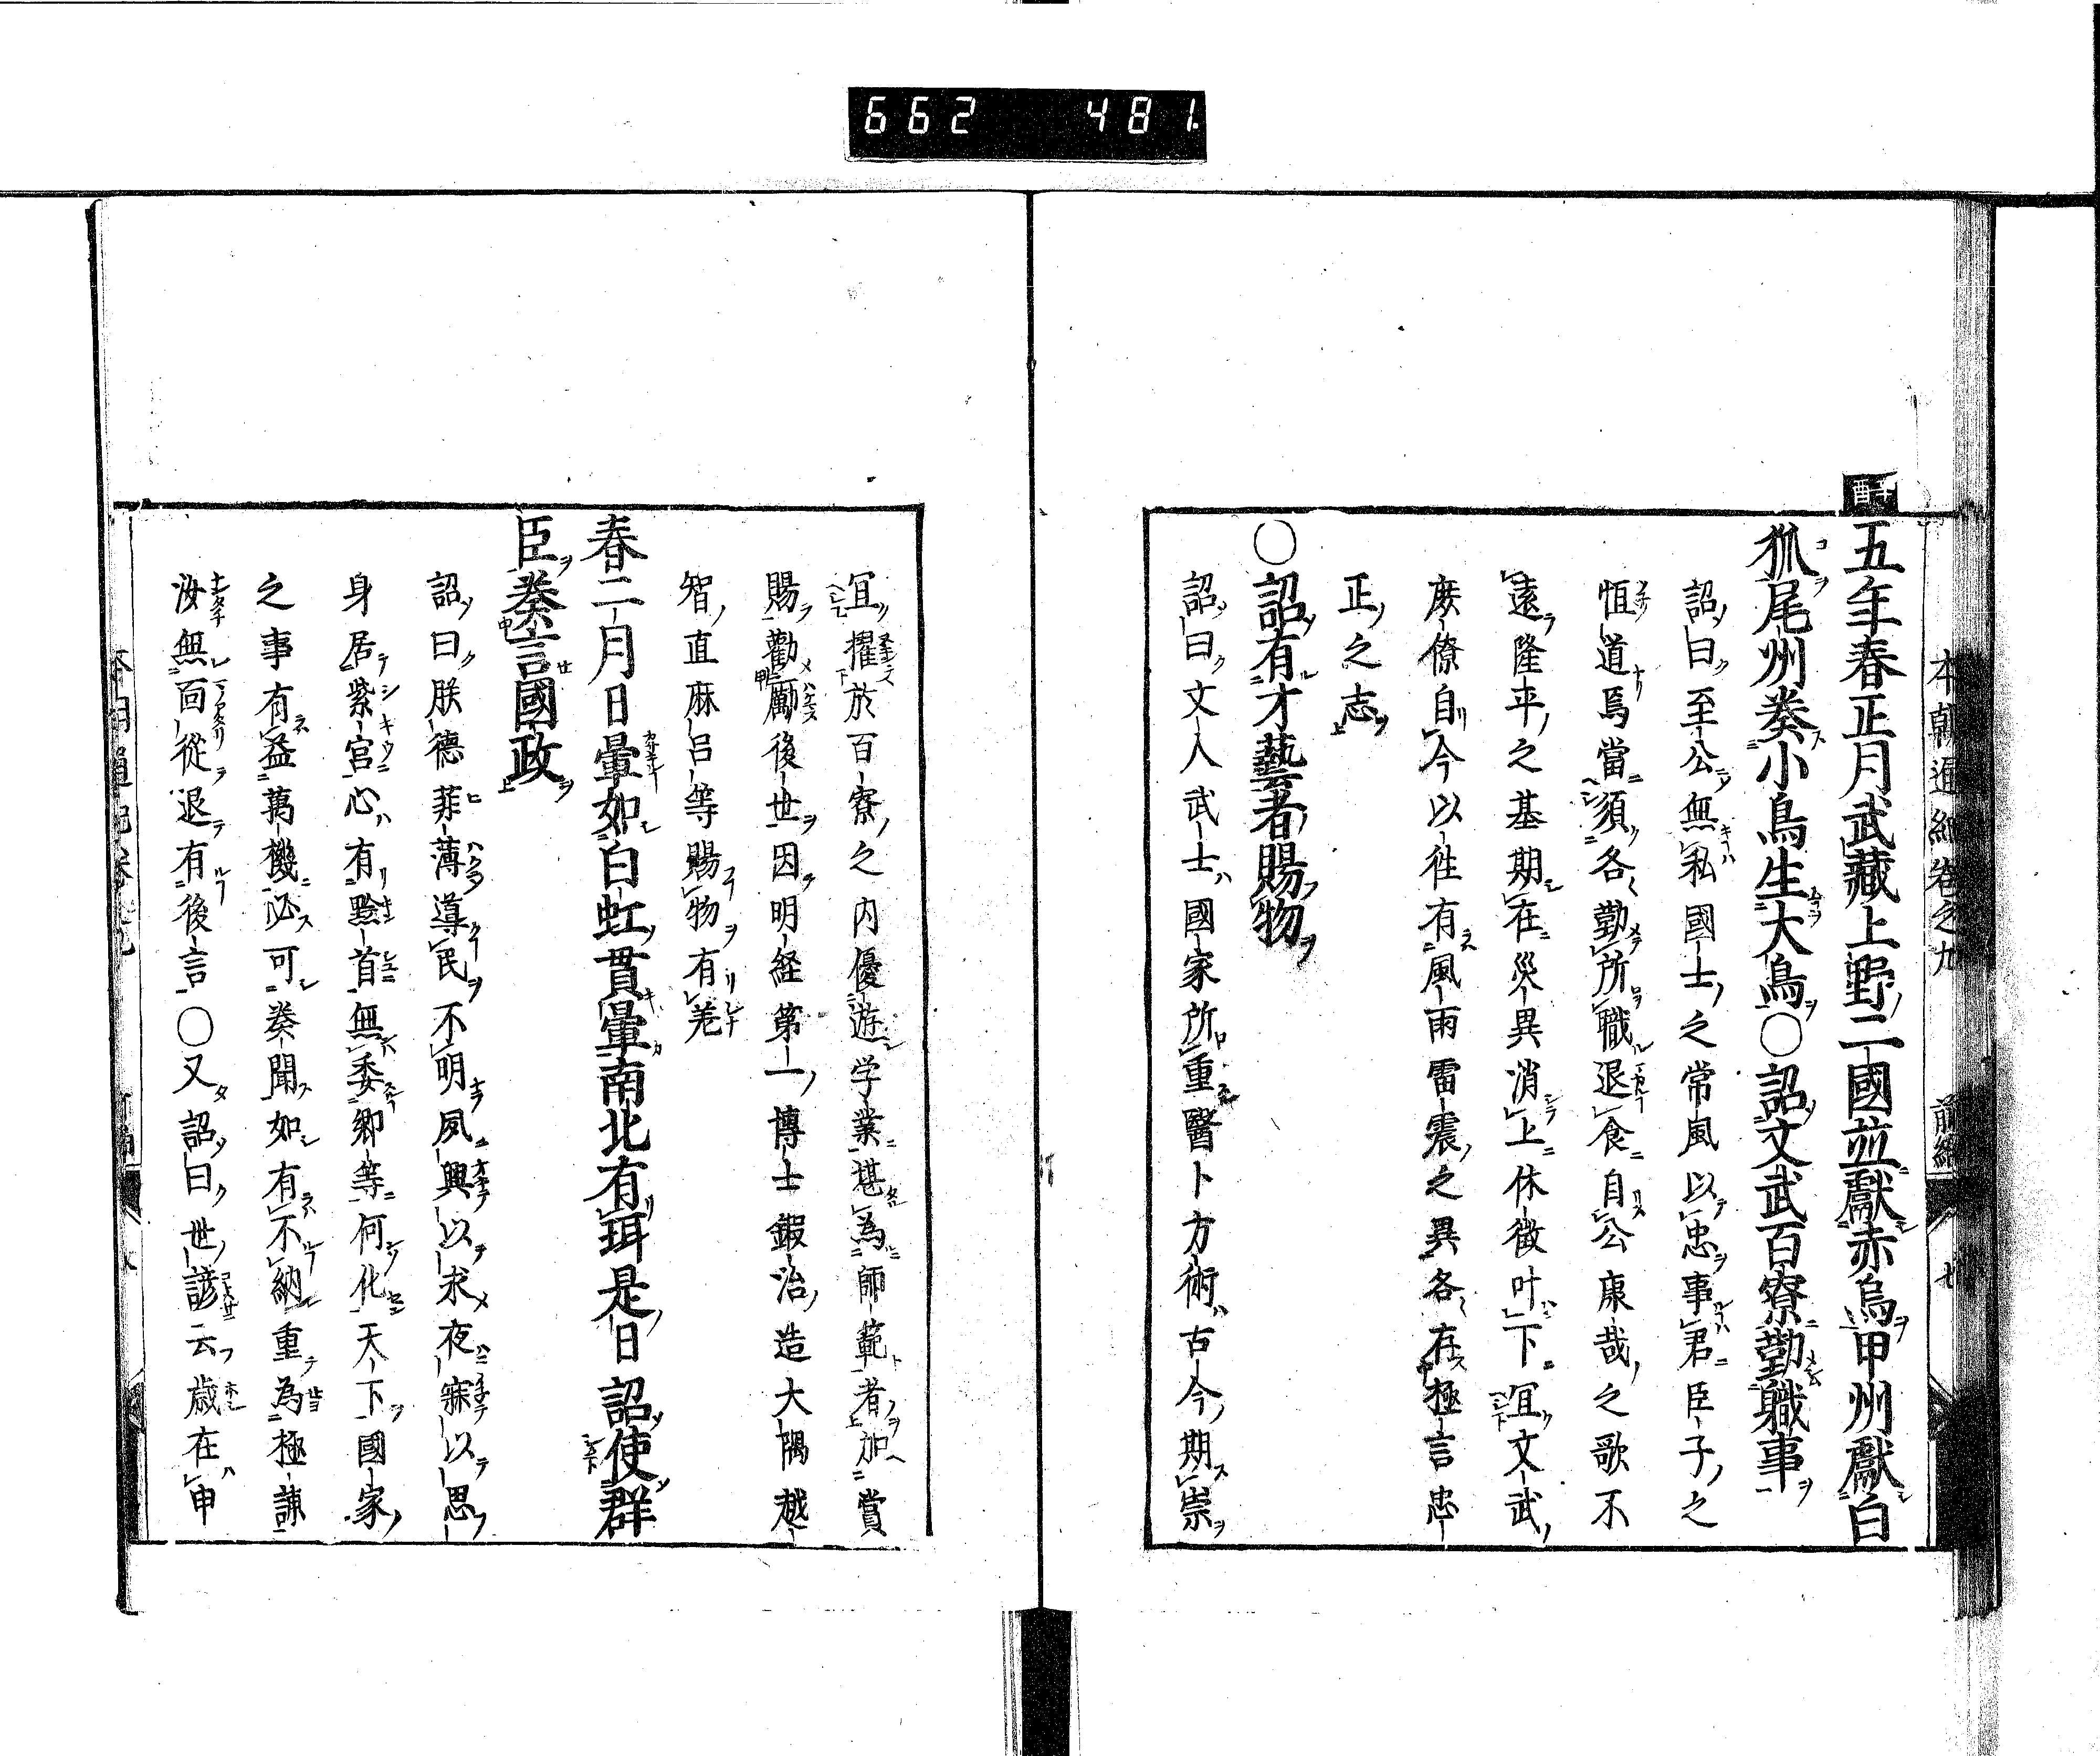 662 481
本朝通紀卷之九 前編 七
辛酉
五年春正月武藏上野二國並獻赤烏甲州獻白
狐尾州奏小鳥生大鳥○詔文武百寮勤職事
詔曰至公無私國士之常風以忠事君臣子之
恒道焉當須各勤所職退食自公康哉之歌不
遠隆平之基期在災異消上休徵叶下宜文武
庶僚自今以往有風雨雷震之異各存極言忠
正之志
○詔有才藝者賜物
詔曰文人武士國家所重醫卜方術古今期崇
宜擢於百寮之內優遊学業堪為師範者加賞
賜勸勵後世因明経第一博士鍜治造大隅越
智直麻呂等賜物有差
春二月日暈如白虹貫暈南北有珥是日詔使群
臣奏言國政
詔曰朕德菲薄導民不明夙興以求夜寐以思
身居紫宮心有黔首無委卿等何化天下國家
之事有益萬機必可奏聞如有不納重為極諫
汝無面從退有後言○又詔曰世諺云歳在申